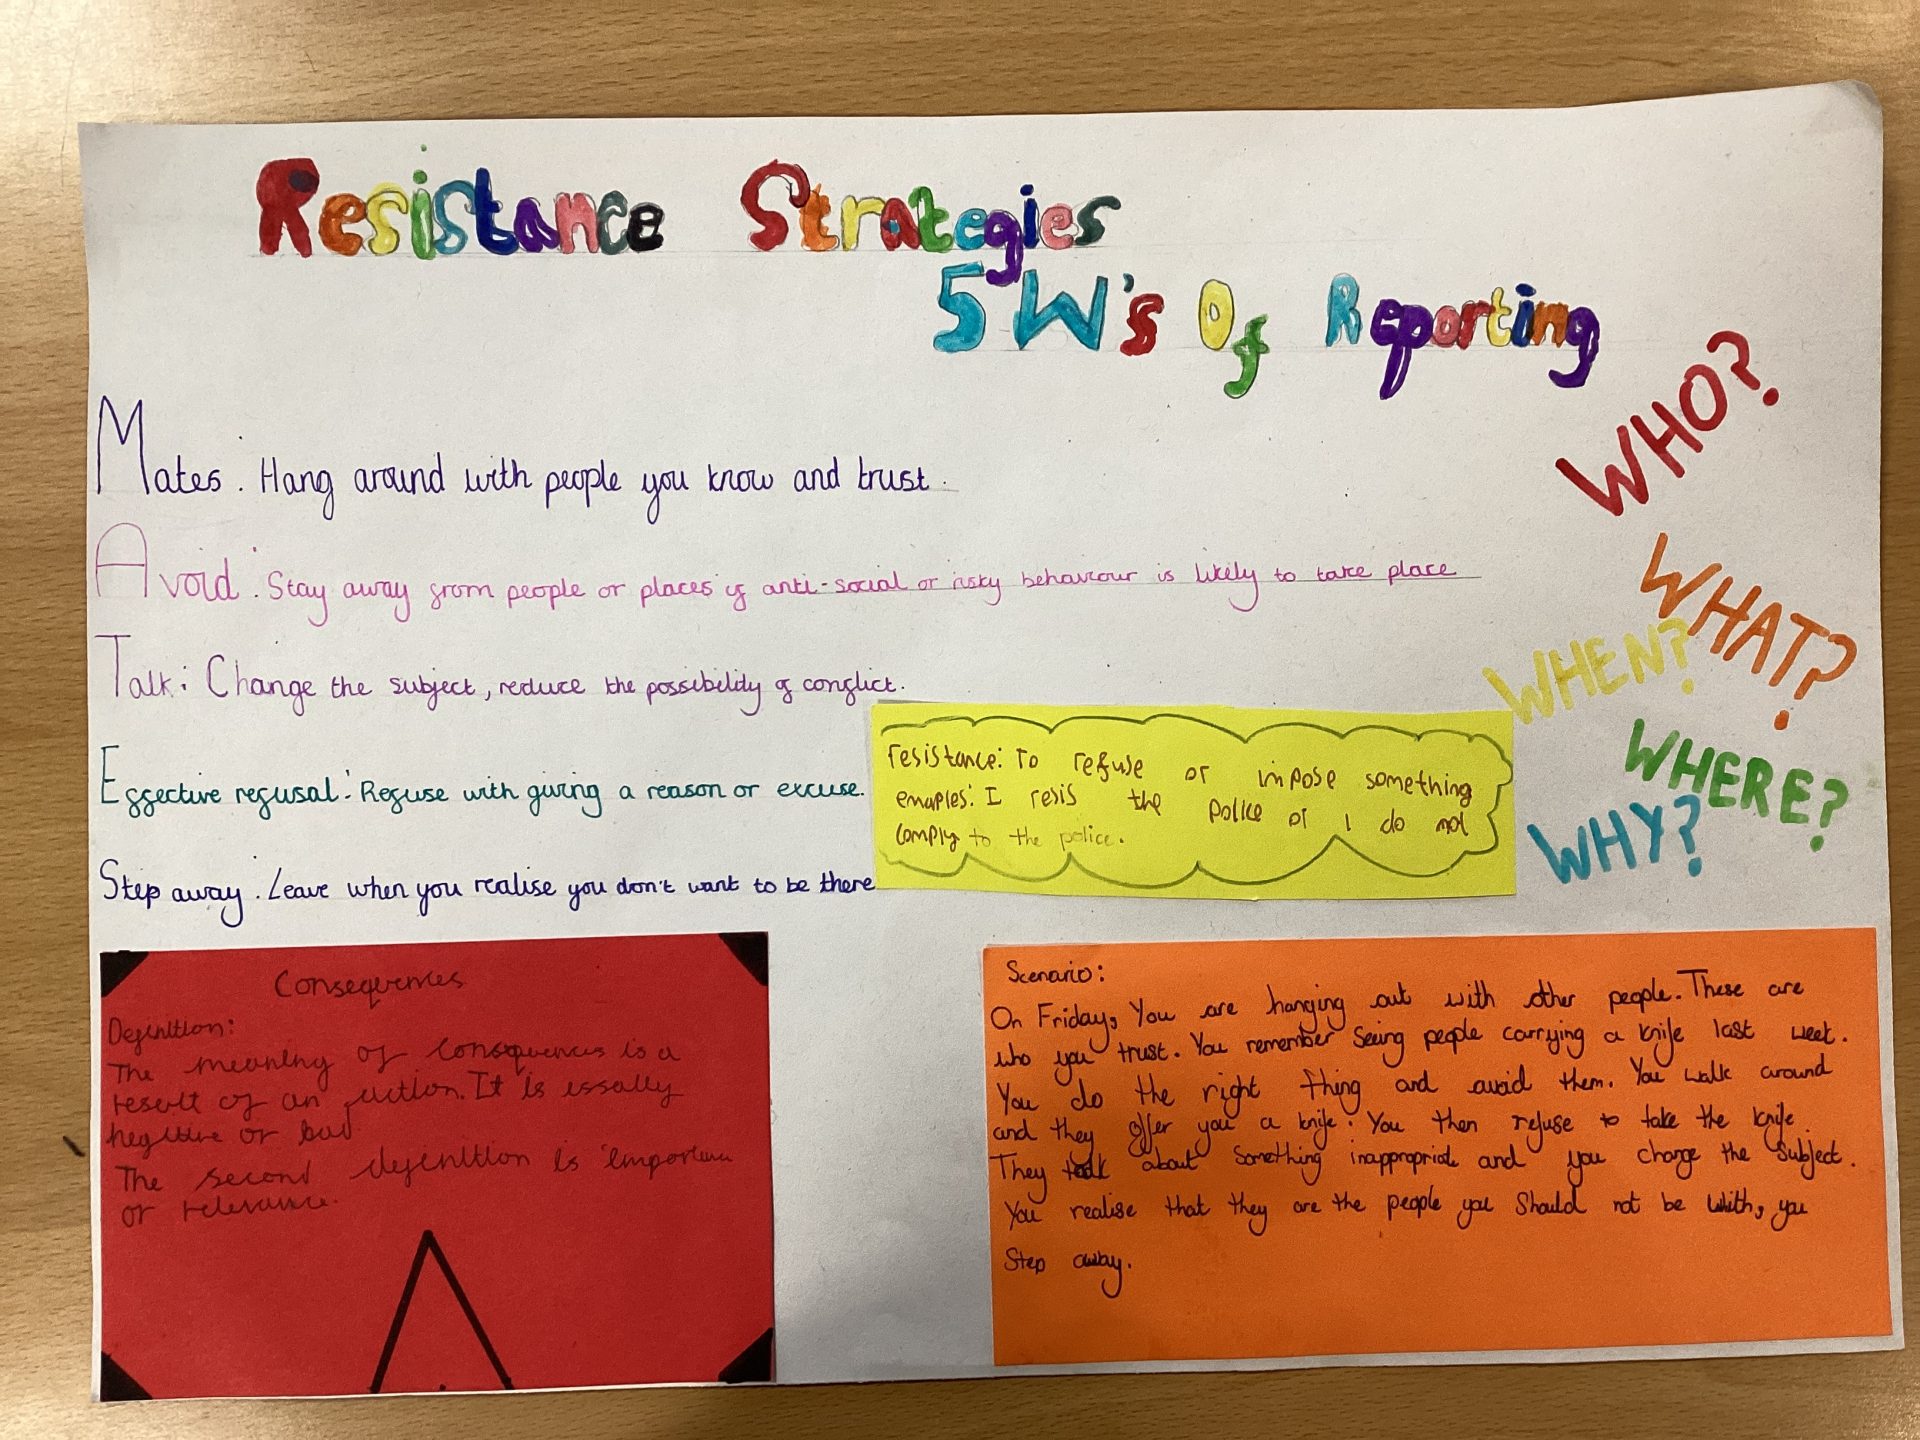 Resistance Strategies
5 W's Of Reporting
WHO?
WHAT?
WHEN?
WHERE?
WHY?
Mates. Hang around with people you know and trust.
Avoid: Stay away from people or places if anti-social or risky behaviour is likely to take place
Talk: Change the subject, reduce the possibility of conflict.
Effective refusal: Refuse with giving a reason or excuse.
Step away. Leave when you realise you don't want to be there
resistance: To refuse or impose something
emaples: I resis the Police or I do not
comply to the police.
Consequences
Definition:
The meaning of consequences is a
result of an action. It is essally
negitive or bad
The second defenition is
or relevance.
Scenario:
On Friday, You are hanging out with other people. These are
who you trust. You remember Seeing people carrying a knife last week.
You do the right thing and avoid them. You walk around
and they offer you a knife. You then refuse to take the knife.
They talk about something inappropriate and you change the subject.
You realise that they are the people you Should not be With, you
Step away.